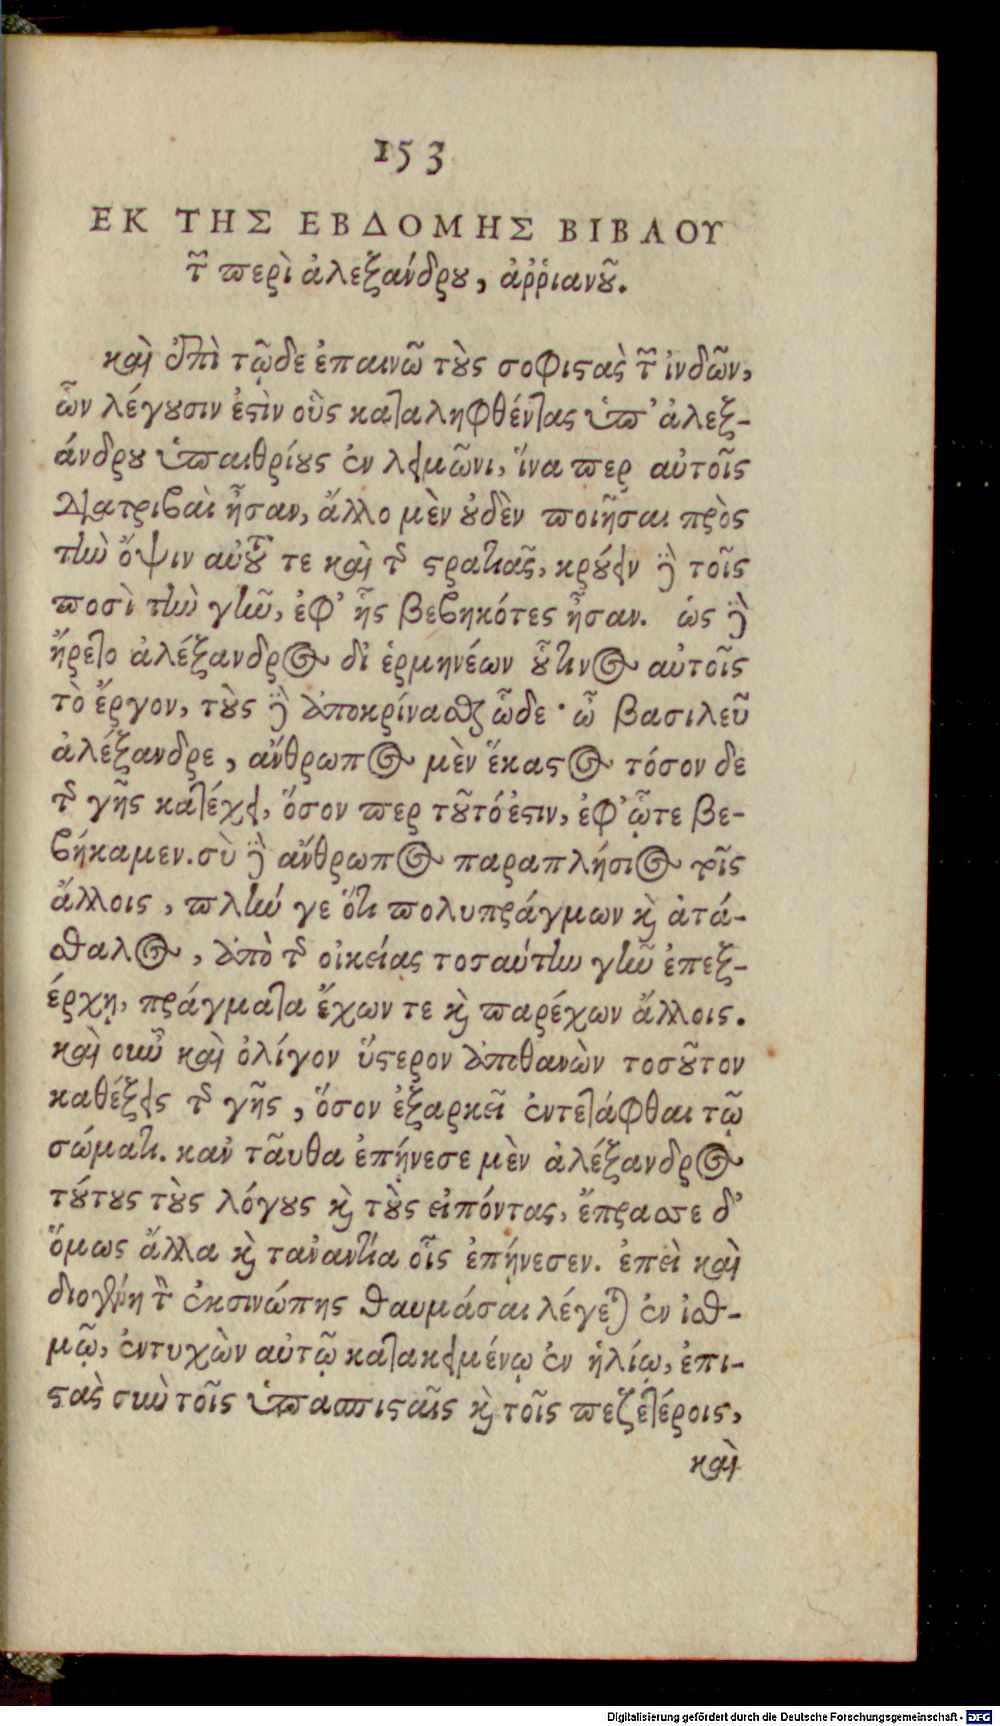 153
ΕΚ ΤΗΣ ΕΒΔΟΜΗΣ ΒΙΒΛΟΥ
τῶν περὶ ἀλεξάνδρου, ἀῤῥιανοῦ.
καὶ ἐπὶ τῷδε ἐπαινῶ τοὺς σοφιστὰς τῶν ἰνδῶν,
ὧν λέγουσιν ἐστὶν οὓς καταληφθέντας ὑπ' ἀλεξ-
άνδρου ὑπαιθρίους ἐν λειμῶνι, ἵνα περ αὐτοῖς
διατριβαὶ ἦσαν, ἄλλο μὲν οὐδὲν ποιῆσαι πρὸς
τὴν ὄψιν αὐτοῦ τε καὶ τῆς στρατιᾶς, κρούειν δὲ τοῖς
ποσὶ τὴν γῆν, ἐφ' ἧς βεβηκότες ἦσαν. ὡς δὲ
ἤρετο ἀλέξανδρος δι' ἑρμηνέων ὅτινος αὐτοῖς
τὸ ἔργον, τοὺς δὲ ἀποκρίνασθαι ὧδε· ὦ βασιλεῦ
ἀλέξανδρε, ἄνθρωπος μὲν ἕκαστος τόσον δε
τῆς γῆς κατέχει, ὅσον περ τοῦτό ἐστιν, ἐφ' ᾧτε βε-
βήκαμεν. σὺ δὲ ἄνθρωπος παραπλήσιος τοῖς
ἄλλοις, πλήν γε ὅτι πολυπράγμων καὶ ἀτά-
σθαλος, ἀπὸ τῆς οἰκείας τοσαύτην γῆν ἐπεξ-
έρχῃ, πράγματα ἔχων τε καὶ παρέχων ἄλλοις.
καὶ οὖν καὶ ὀλίγον ὕστερον ἀποθανὼν τοσοῦτον
καθέξεις τῆς γῆς, ὅσον ἐξαρκεῖ ἐντετάφθαι τῷ
σώματι. καν ταῦθα ἐπῄνεσε μὲν ἀλέξανδρος
τούτους τοὺς λόγους καὶ τοὺς εἰπόντας, ἔπρασσε δ'
ὅμως ἄλλα καὶ ταναντία οἷς ἐπῄνεσεν. ἐπεὶ καὶ
διογένη τὸν ἐκ σινώπης θαυμάσαι λέγεται ἐν ἰσθ-
μῷ, ἐντυχὼν αὐτῷ κατακειμένῳ ἐν ἡλίῳ, ἐπι-
στὰς σὺν τοῖς ὑπασπισταῖς καὶ τοῖς πεζετέροις,
καὶ
Digitalisierung gefördert durch die Deutsche Forschungsgemeinschaft - DFG